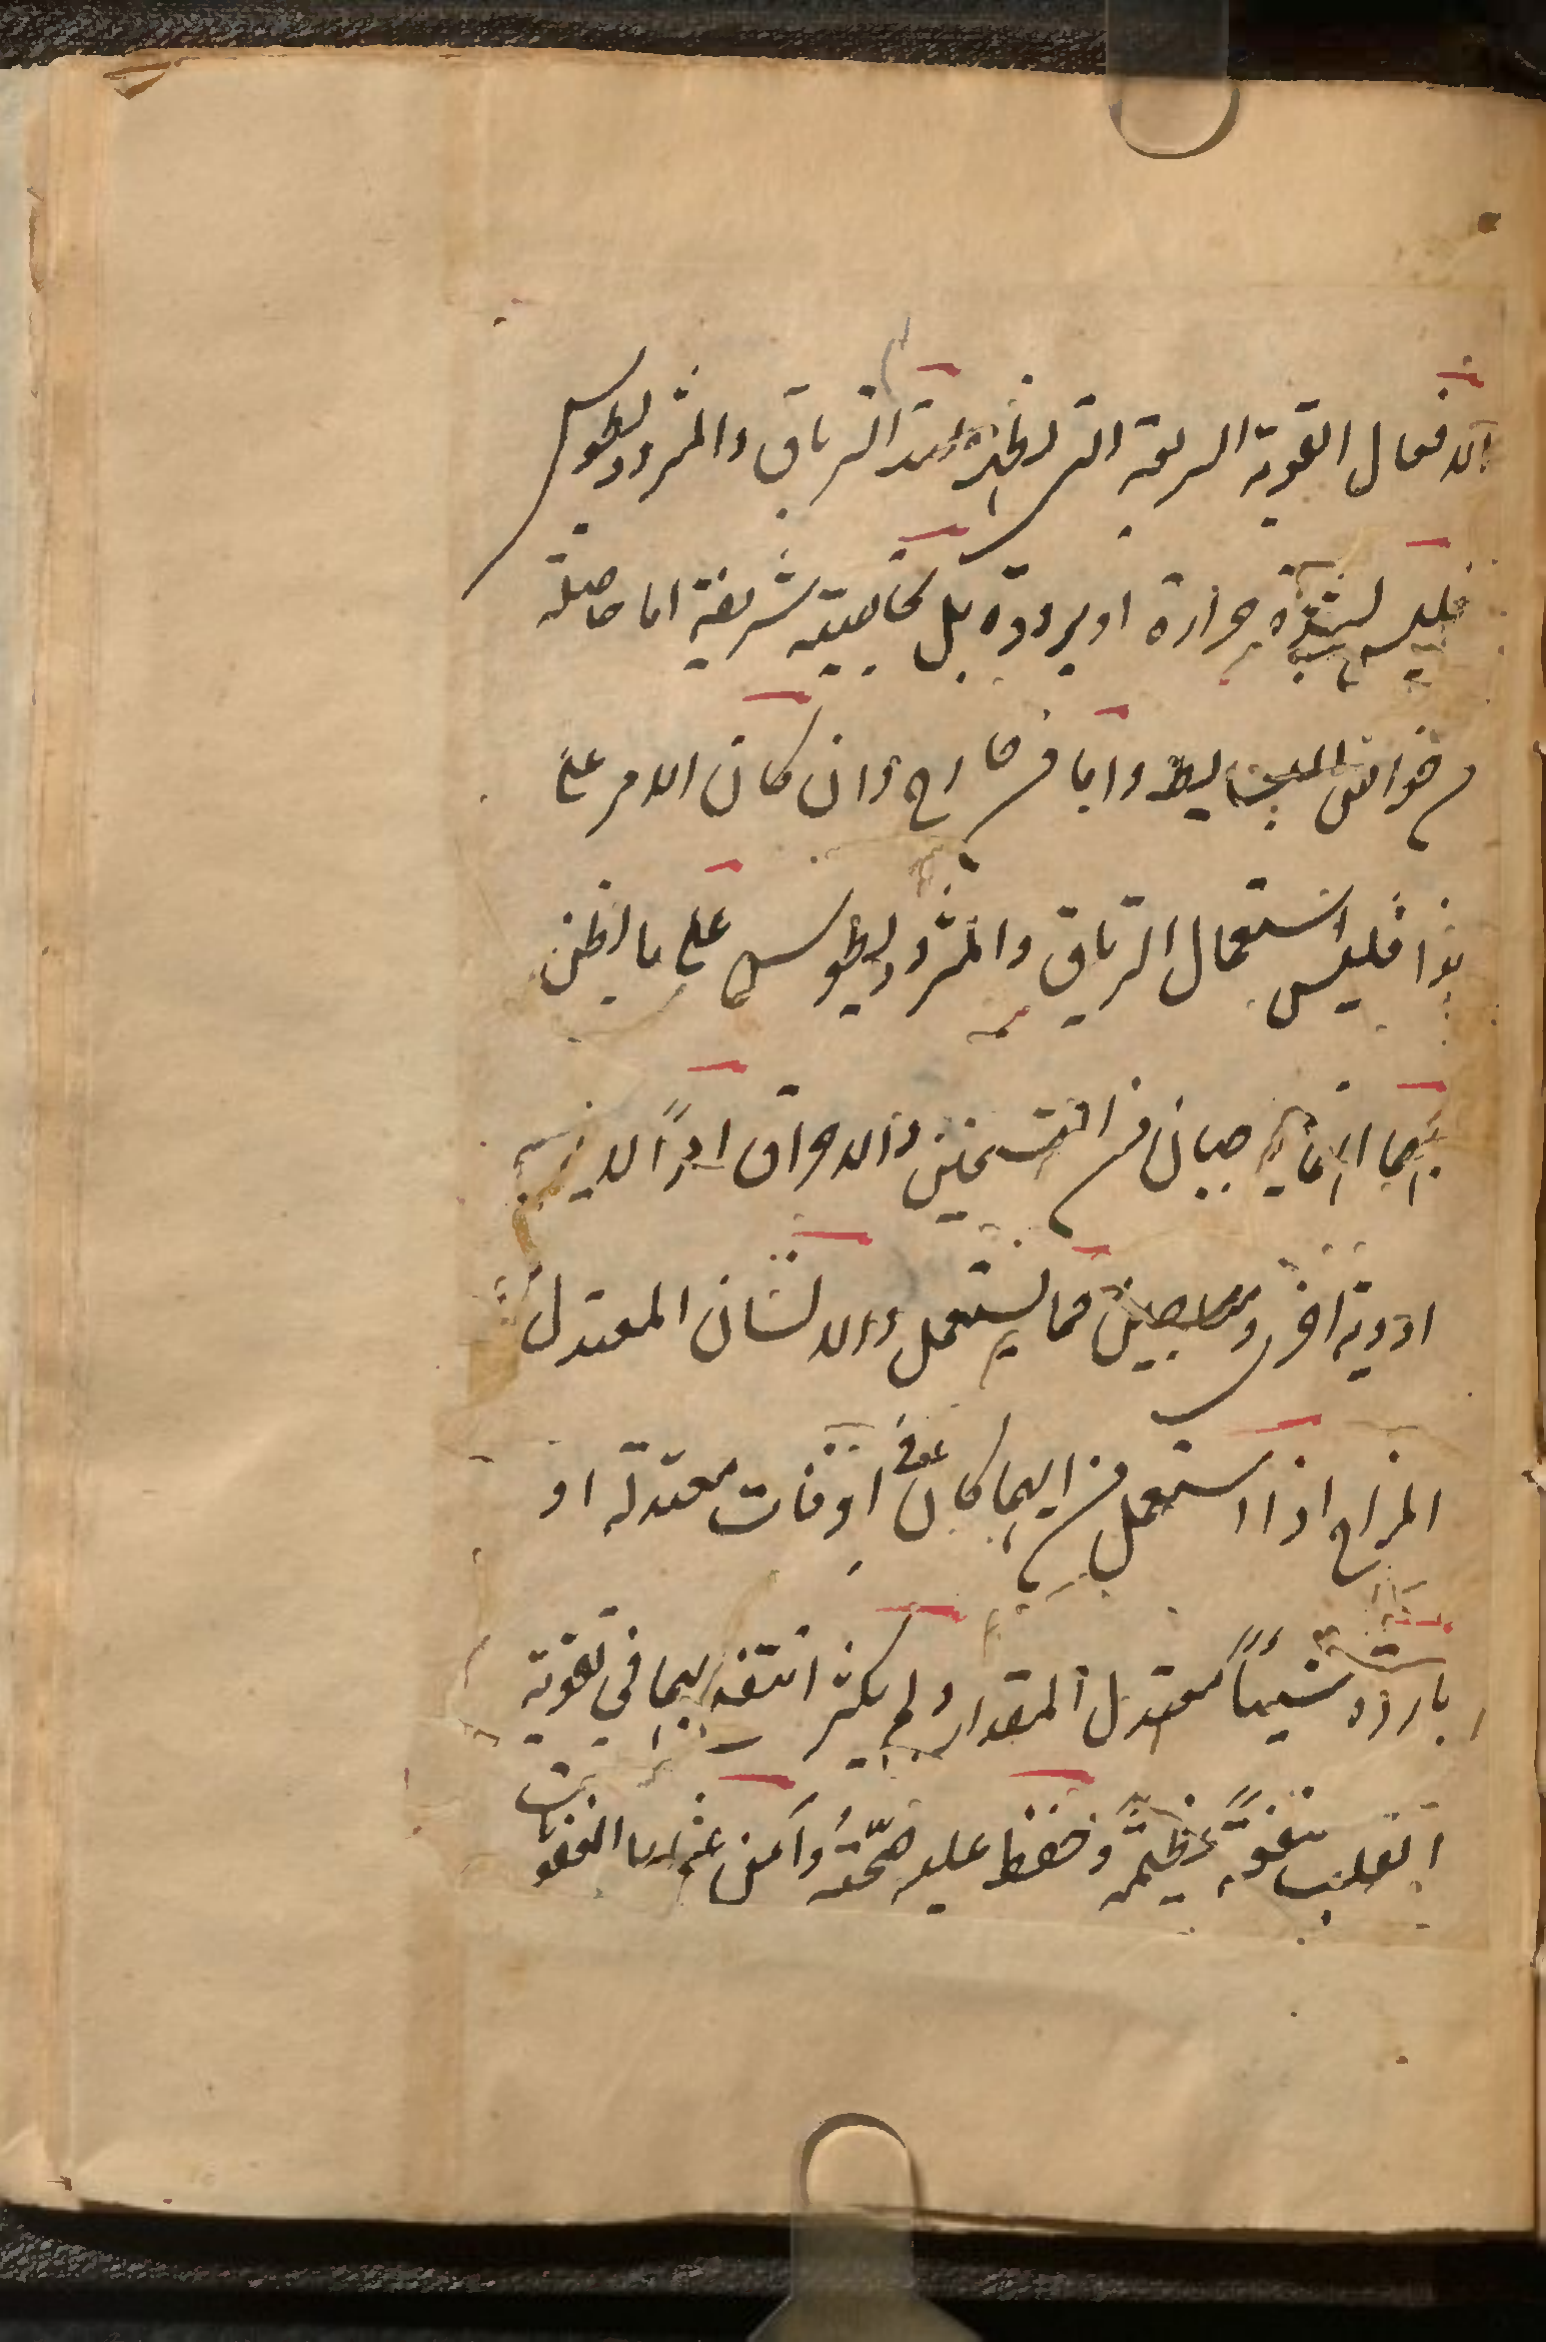 الافعال القوية السريعة التى لظهر بعد الترياق والمثروديطوس
فليس لشدة حرارة او برودة بل لخاصية شريفة اما حاصلة
من خواص البسايط واما من خارج وان كان الامر على
هذا فليس استعمال الترياق والمثروديطوس على ما يظن
بهما انهما يوجبان من التسخين والاحراق امراً لا يوجبه
ادوية اخرى ومعاجين مما يستعمل والانسان المعتدل
المزاج اذا استعمل من ايهما كان فى اوقات معتدلة او
باردة شيئاً معتدل المقدار ولم يكثر انتفع بهما فى تقوية
القلب منفعةً عظيمةً وحفظ عليه صحّته وأمن عليه العفونات